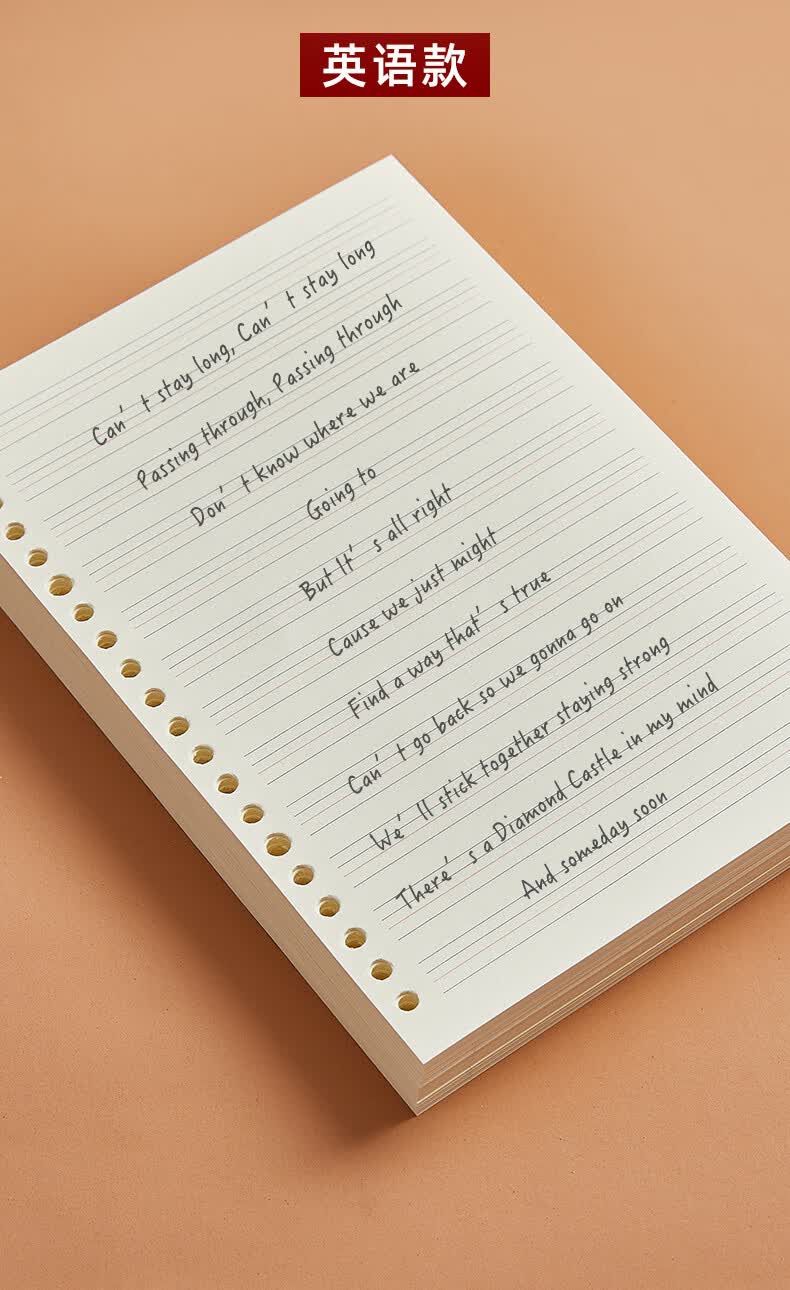 英语款
Can't stay long, Can't stay long
Passing through, Passing through
Don't know where we are
Going to
But It's all right
Cause we just might
Find a way that's true
Can't go back so we gonna go on
We'll stick together staying strong
There's a Diamond Castle in my mind
And someday soon